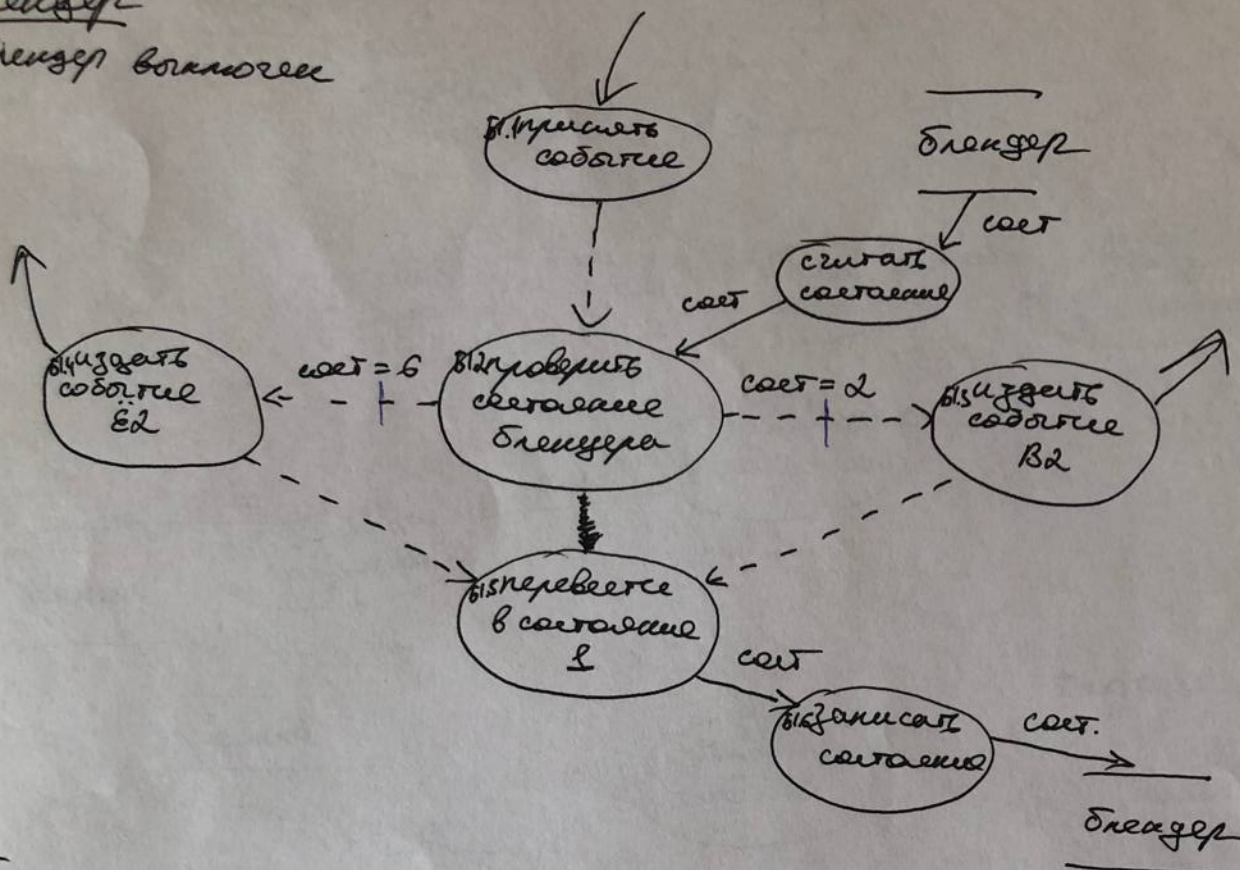 ендер
лендер выключен
Б1.1 принять
событие
блендер
сост
считать
состояние
сост
Б1.4 издать
событие
Ё2
сост = 6
Б1.2 проверить
состояние
блендера
сост = 2
Б1.3 издать
событие
В2
Б1.5 перевести
в состояние
1
сост
Б1.6 записать
состояние
сост.
блендер